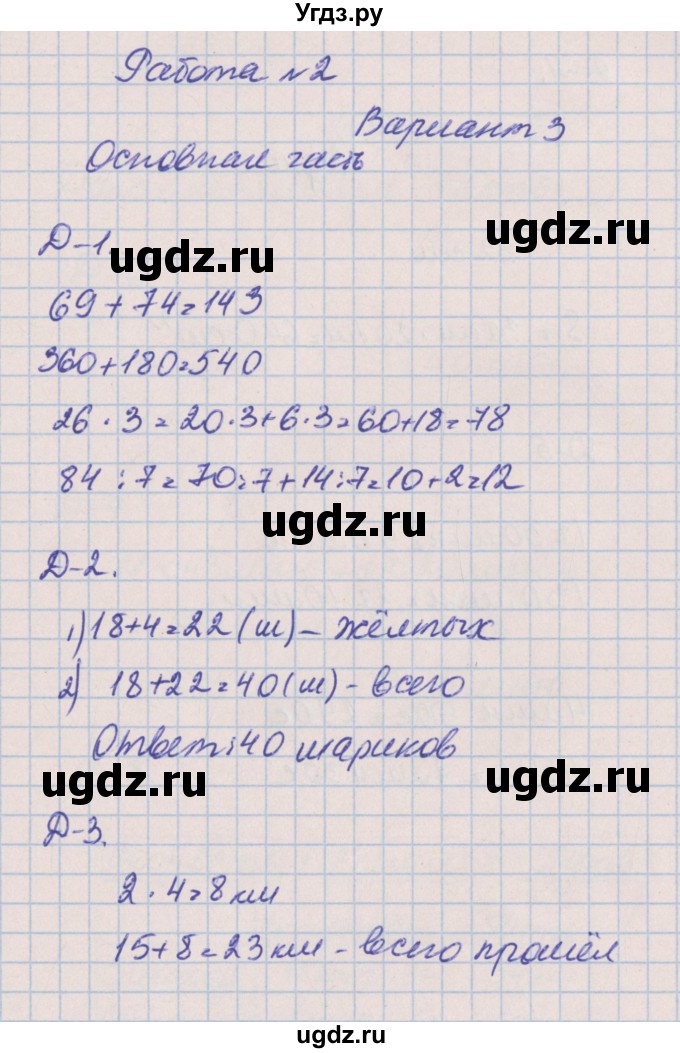 Угдз.ру
Работа №2
Вариант 3
Основная часть
Д-1.
ugdz.ru
ugdz.ru
69+74=143
360+180=540
26·3=20·3+6·3=60+18=78
84:7=70:7+14:7=10+2=12
ugdz.ru
Д-2.
1) 18+4=22 (ш) - жёлтых
2) 18+22=40 (ш) - всего
Ответ: 40 шариков
ugdz.ru
ugdz.ru
Д-3.
2·4=8 км
15+8=23 км - всего прошёл
ugdz.ru